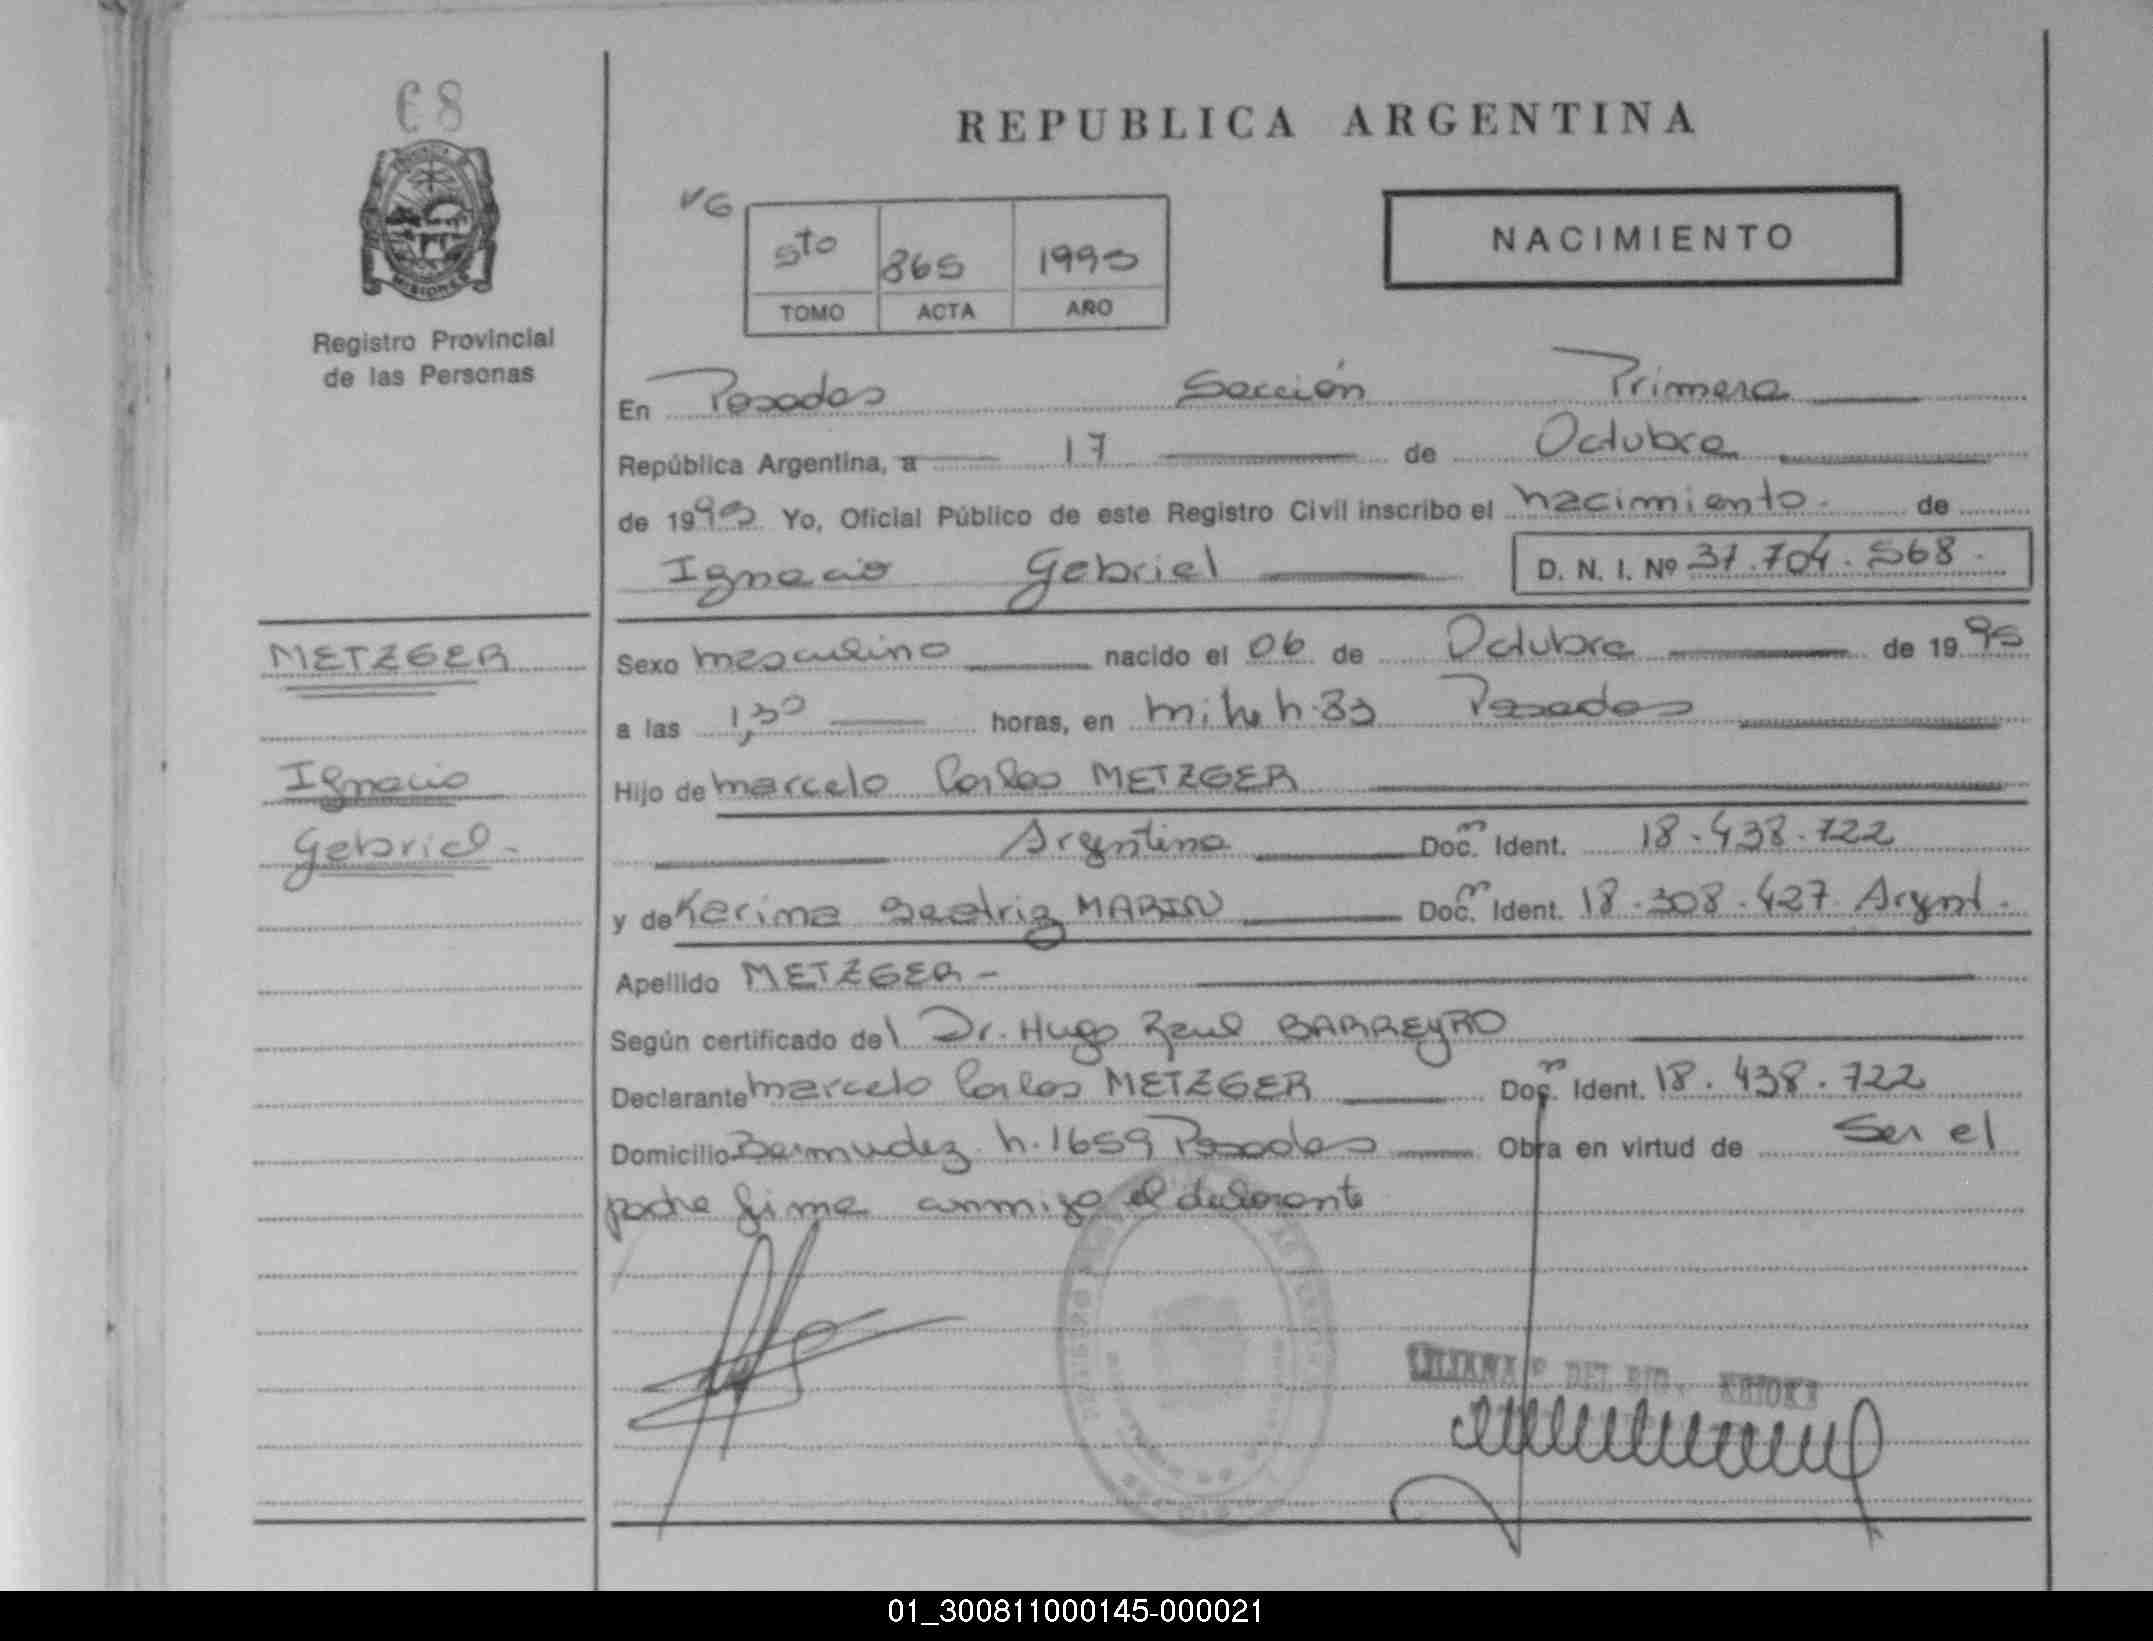 68
REPUBLICA ARGENTINA
MISIONES
Registro Provincial
de las Personas
5to 865 1995
TOMO ACTA AÑO
NACIMIENTO
En Posadas Sección Primera
República Argentina, a 17 de Octubre
de 1995 Yo, Oficial Público de este Registro Civil inscribo el nacimiento. de
Ignacio Gabriel D. N. I. Nº 37.704.568.
METZGER
Ignacio
Gabriel.
Sexo masculino nacido el 06 de Octubre de 1995
a las 1,30 horas, en Posadas
Hijo de Marcelo Carlos METZGER
Argentino Doc. Ident. 18.438.722
y de Karina Beatriz MARIN Doc. Ident. 18.308.427 Argent.
Apellido METZGER -
Según certificado del Dr. Hugo Raul BARREYRO
Declarante Marcelo Carlos METZGER Doc. Ident. 18.438.722
Domicilio Bermudez h. 1659 Posadas Obra en virtud de Ser el
padre firma conmigo el declarante
LILIANA DEL
01_300811000145-000021